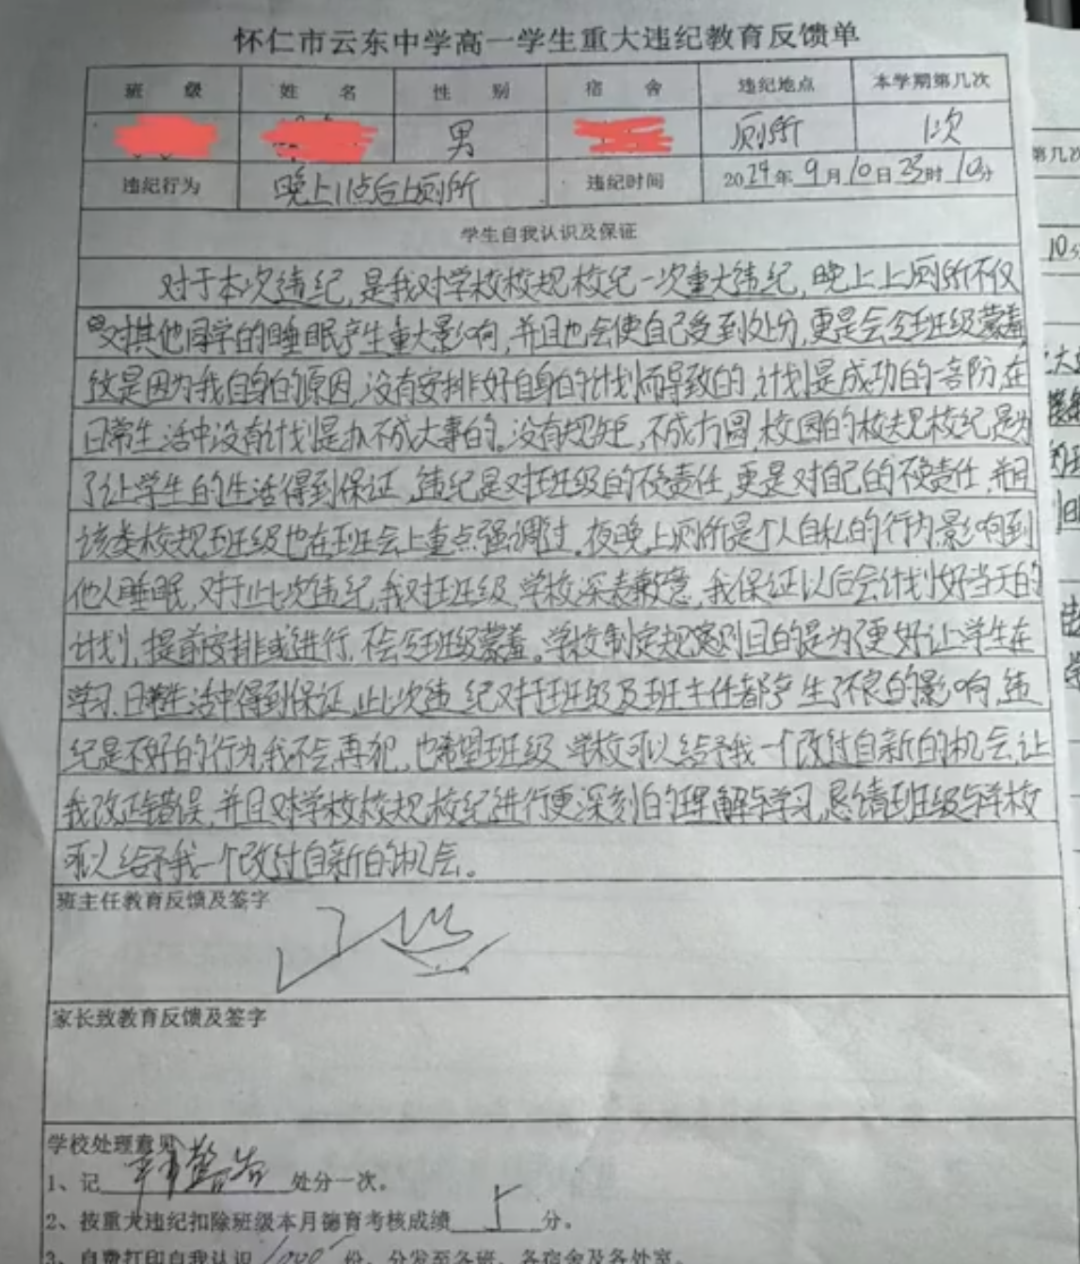 怀仁市云东中学高一学生重大违纪教育反馈单
班 级 姓 名 性 别 宿 舍 违纪地点 本学期第几次
男 厕所 1次
违纪行为 晚上11点后上厕所 违纪时间 2024年9月10日23时10分
学生自我认识及保证
对于本次违纪,是我对学校校规校纪一次重大违纪,晚上上厕所不仅
对其他同学的睡眠产生重大影响,并且也会使自己受到处分,更是会令班级蒙羞
这是因为我自身的原因,没有安排好自身的计划而导致的,计划是成功的一部阶,在
日常生活中没有计划是办不成大事的。没有规矩,不成方圆,校园的校规校纪是为
了让学生的生活得到保证,违纪是对班级的不负责任,更是对自己的不负责任,并且
该类校规班级也在班会上重点强调过。夜晚上厕所是个人自私的行为,影响到
他人睡眠,对于此次违纪,我对班级、学校深表歉意,我保证以后会计划好当天的
计划,提前安排或进行,不会令班级蒙羞。学校制定规章则目的是为了更好让学生在
学习、日常生活中得到保证,此次违纪对于班级及班主任都产生了不良的影响,违
纪是不好的行为,我不会再犯,也希望班级、学校可以给予我一个改过自新的机会,让
我改正错误,并且对学校校规、校纪进行更深刻的理解与学习,恳请班级与学校
可以给予我一个改过自新的机会。
班主任教育反馈及签字
家长致教育反馈及签字
学校处理意见
1、记 警告 处分一次。
2、按重大违纪扣除班级本月德育考核成绩 5 分。
3、自费打印自我认识 1000 份,分发至各班、各宿舍及各处室。
第几次
10分